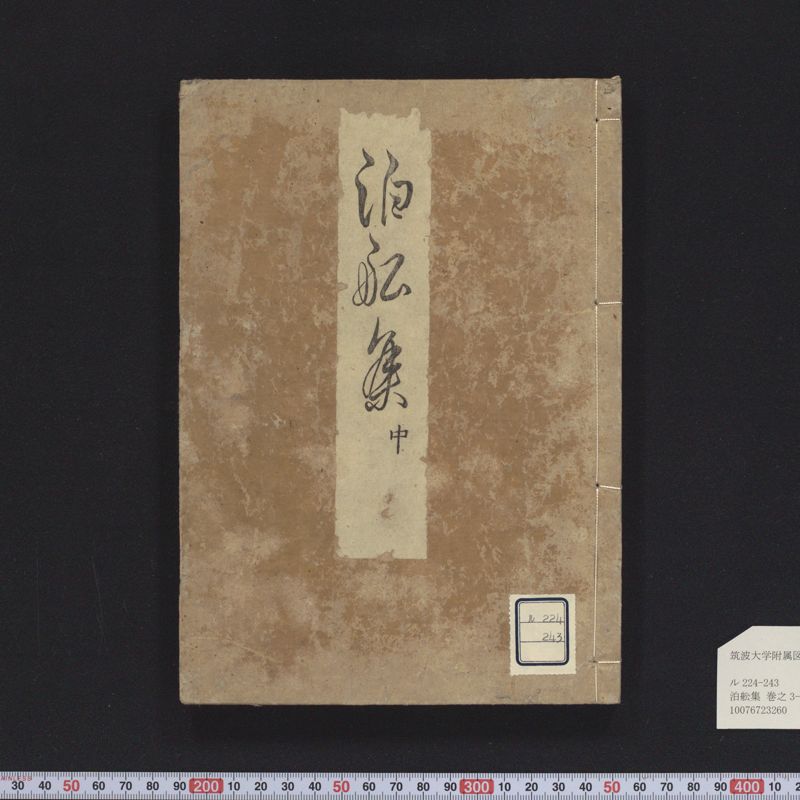 泊舩集
中
ル 224
243
筑波大学附属図
ル 224-243
泊舩集 巻之 3-
10076723260
30 40 50 60 70 80 90 200 10 20 30 40 50 60 70 80 90 300 10 20 30 40 50 60 70 80 90 400 10 2